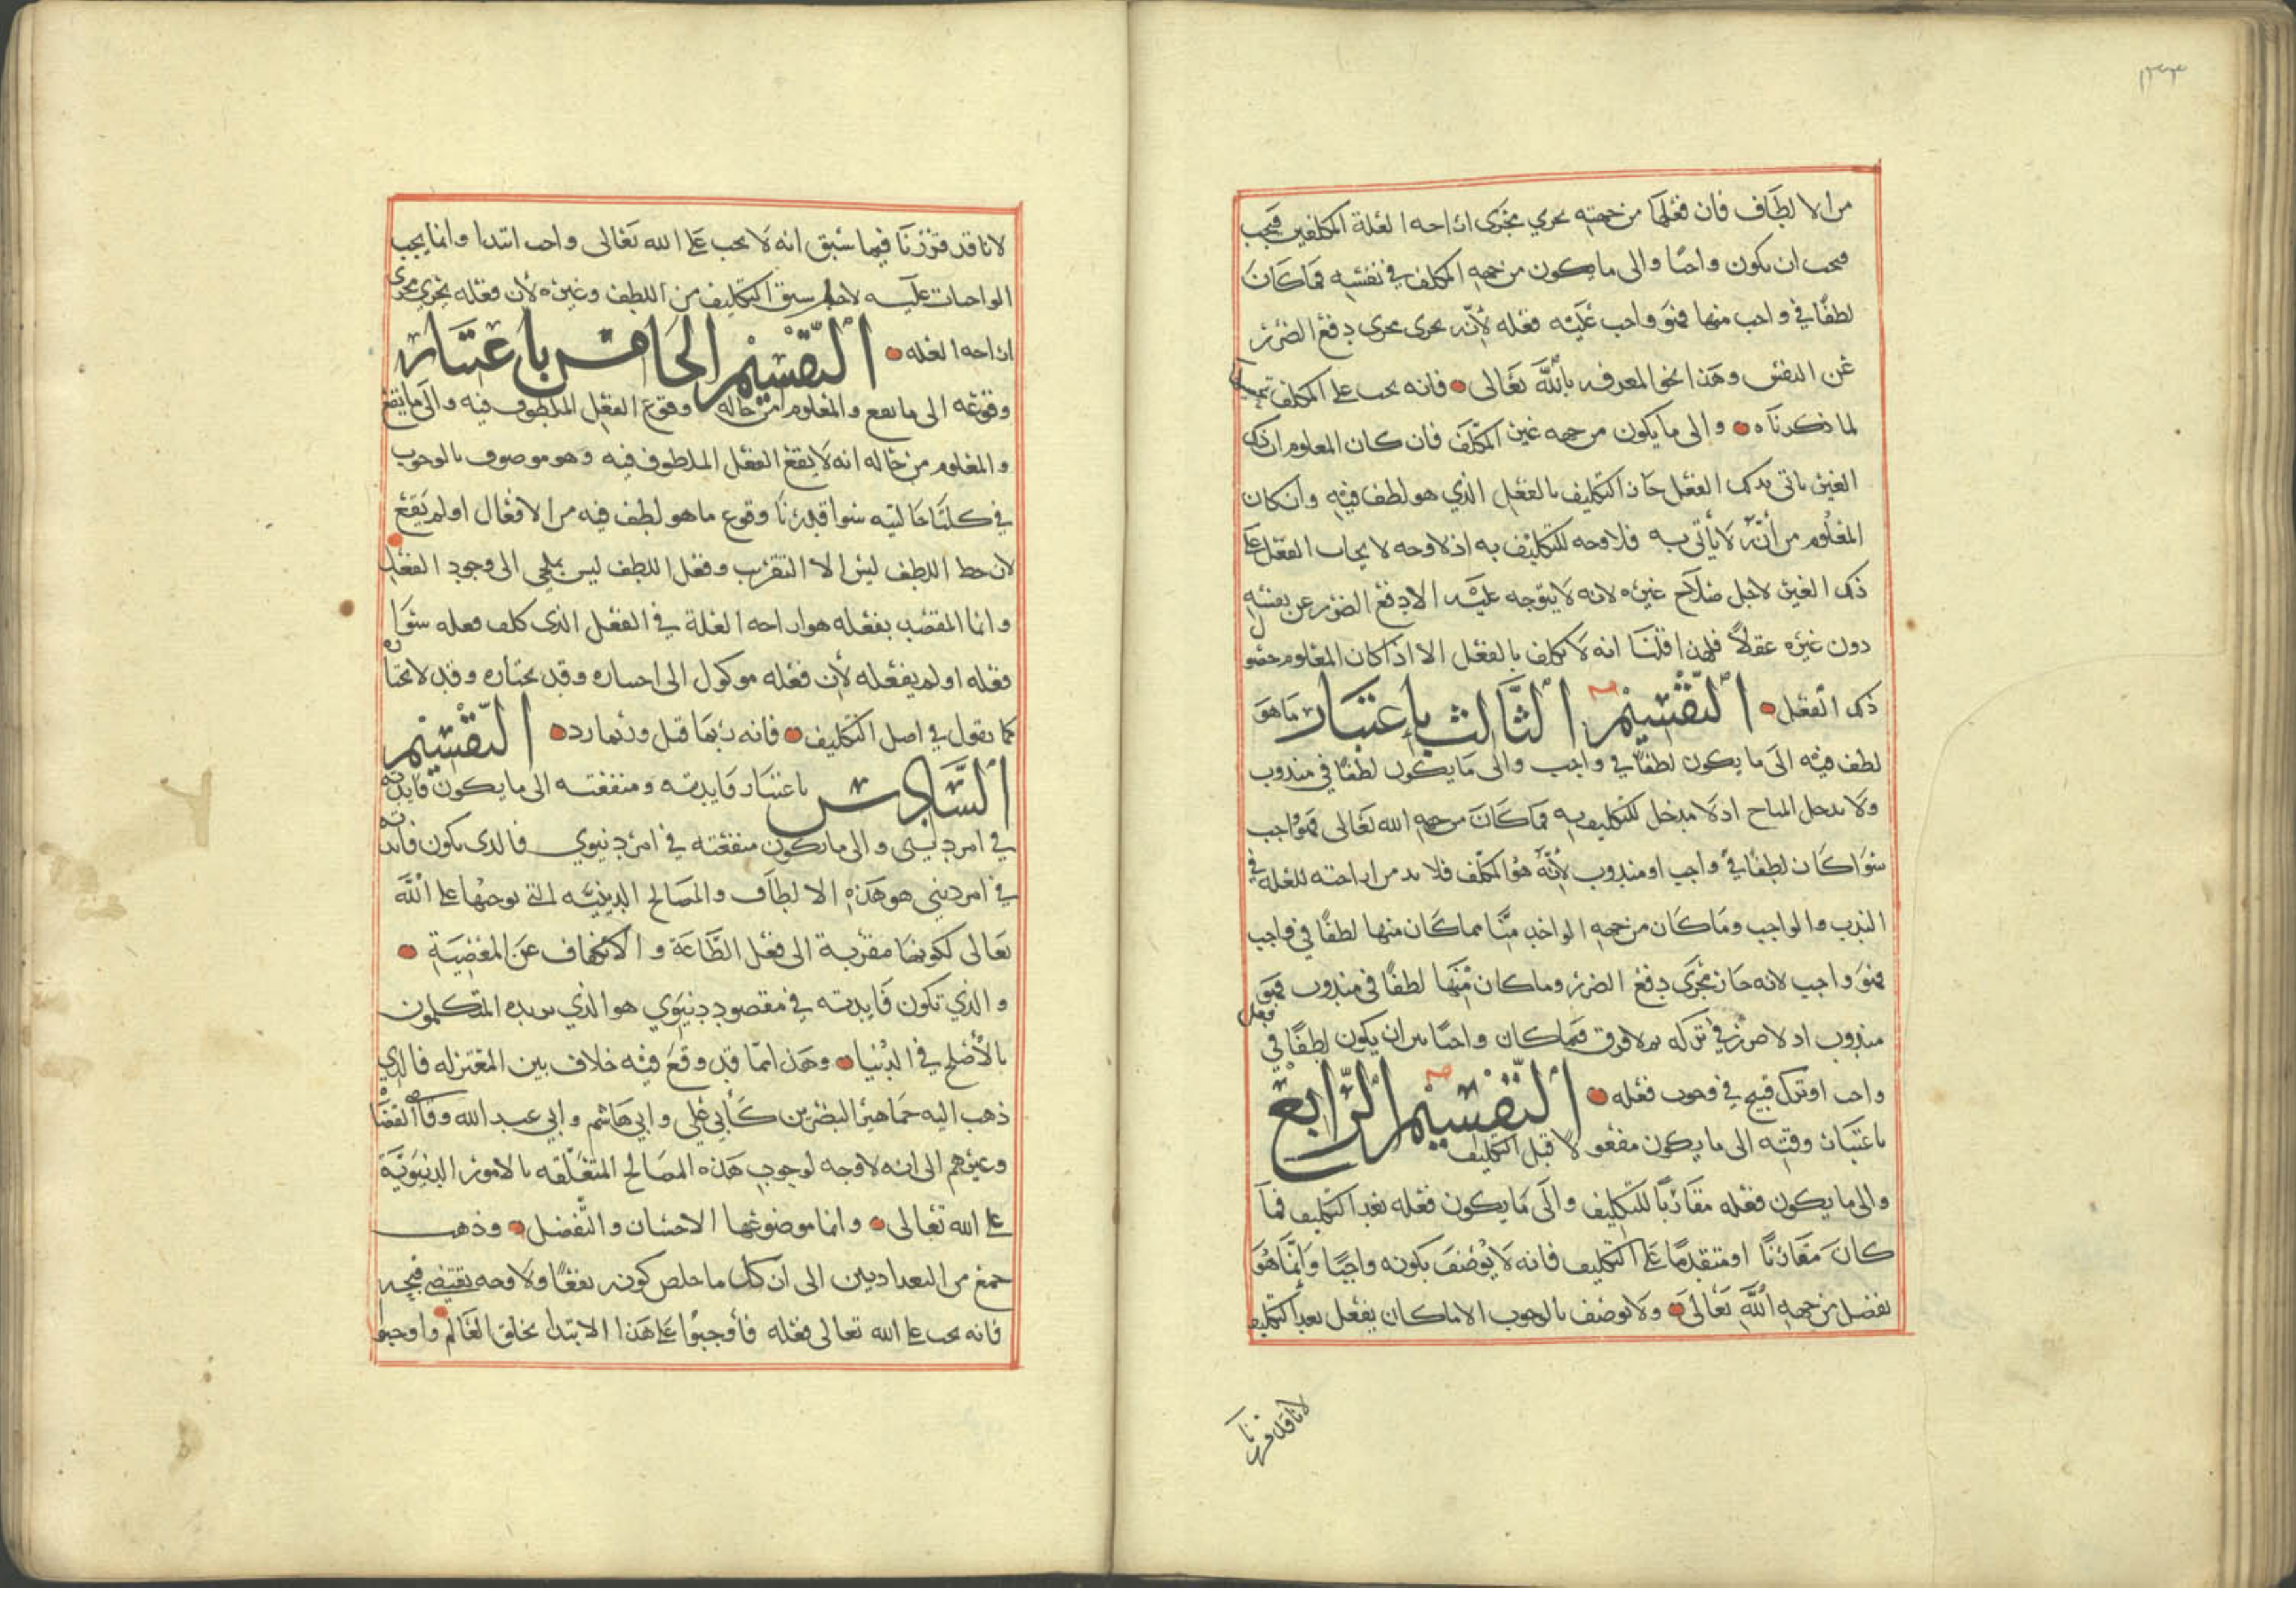 ١٣٣
من الالطاف فان فعلها من جهته يجري مجرى ازاحة العلة المكلفين فيجب
فيجب ان يكون واجبا والى ما يكون من جهة المكلف في نفسه فما كان
لطفا في واجب منها فهو واجب عليه فعله لأنه يجري مجرى دفع الضرر
عن النفس وهذا نحو المعرفه بالله تعالى فانه يجب على المكلف
لما ذكرناه والى ما يكون من جهة غير المكلف فان كان المعلوم ان ذلك
الغير ياتي بذلك الفعل جاز التكليف بالفعل الذي هو لطف فيه وان كان
المعلوم من أنه لا يأتي به فلا وجه للتكليف به اذ لا وجه لايجاب الفعل على
ذلك الغير لاجل صلاح غيره لانه لا يتوجه عليه الا دفع الضرر عن نفسه
دون غيره عقلا فلهذا قلنا انه لا يكلف بالفعل الا اذا كان المعلوم حصول
ذلك الفعل التقسيم الثالث باعتبار ما هو
لطف فيه الى ما يكون لطفا في واجب والى ما يكون لطفا في مندوب
ولا يدخل المباح اذ لا مدخل للتكليف به فما كان من جهة الله تعالى فهو واجب
سوا كان لطفا في واجب او مندوب لأنه هو المكلف فلا بد من ازاحته للعلة في
الندب والواجب وما كان من جهة الواحد منا مما كان منها لطفا في واجب
فهو واجب لانه جار مجرى دفع الضرر وما كان منها لطفا في مندوب فهو
مندوب اذ لا ضرر في تركه ثم لا فرق فيما كان واجبا بين ان يكون لطفا في فعل
واجب او ترك قبيح في وجوب فعله التقسيم الرابع
باعتبار وقته الى ما يكون مفعولا قبل التكليف
والى ما يكون فعله مقارنا للتكليف والى ما يكون فعله بعد التكليف فما
كان مقارنا او متقدما على التكليف فانه لا يوصف بكونه واجبا وإنما هو
تفضل من جهة الله تعالى ولا يوصف بالوجوب الا ما كان يفعل بعد التكليف
لانا قد قررنا
لانا قد قررنا فيما سبق انه لا يجب على الله تعالى واجب ابتدا وانما يجب
الواجبات عليه لاجل سبق التكليف من اللطف وغيره لأن فعله يجري مجرى
ازاحة العله التقسيم الخامس باعتبار
وقوعه الى ما يقع والمعلوم من حاله وقوع الفعل الملطوف فيه والى ما يقع
والمعلوم من حاله انه لا يقع الفعل الملطوف فيه وهو موصوف بالوجوب
في كلتا حالتيه سوا قدرنا وقوع ما هو لطف فيه من الافعال او لم يقع
لان حظ اللطف ليس الا التقريب وفعل اللطف ليس بملجي الى وجود الفعل
وانما المقصد بفعله هو ازاحة العلة في الفعل الذي كلف فعله سوا
فعله او لم يفعله لأن فعله موكول الى اختياره وقد يختاره وقد لا يختاره
كما نقول في اصل التكليف فانه ربما قبل وربما رد التقسيم
السادس باعتبار فايدته ومنفعته الى ما يكون فايدته
في امر ديني والى ما يكون منفعته في امر دنيوي فالذي يكون فايدته
في امر ديني هو هذه الالطاف والمصالح الدينية التي نوجبها على الله
تعالى لكونها مقربة الى فعل الطاعة والانكفاف عن المعصية
والذي تكون فايدته في مقصود دنيوي هو الذي يريده المتكلمون
بالأصلح في الدنيا وهذا مما قد وقع فيه خلاف بين المعتزله فالذي
ذهب اليه جماهير البصريين كأبي علي وابي هاشم وابي عبد الله وقاضي القضاة
وغيرهم الى انه لا وجه لوجوب هذه المصالح المتعلقه بالامور الدنيوية
على الله تعالى وانما موضوعها الاحسان والتفضل وذهب
جمع من البغداديين الى ان كل ما خلص كونه نفعا ولا وجه يقتضي قبحه
فانه يجب على الله تعالى فعله فأوجبوا على هذا الابتدا بخلق العالم واوجبوا